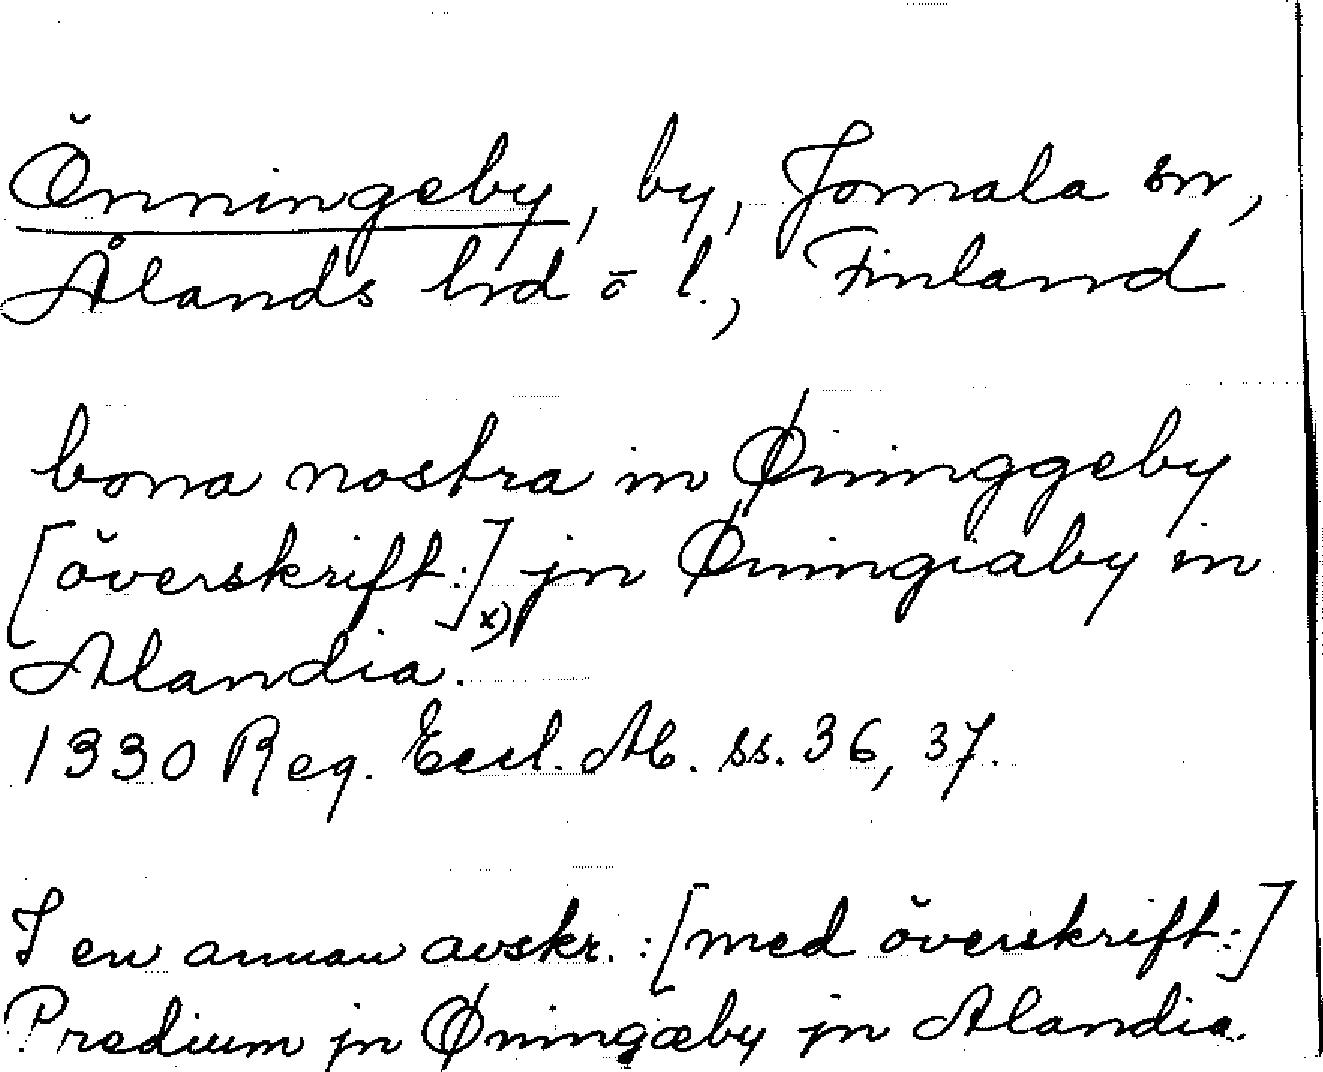 Önningeby, by, Jomala sn,
Ålands hrd o l., Finland
bona nostra in Øninggeby
[överskrift:] jn Øningiaby in
x)
Alandia.
1330 Reg. Eccl. Ab. ss. 36, 37.
I en annan avskr.: [med överskrift:]
Predium jn Øningæby jn Alandia.